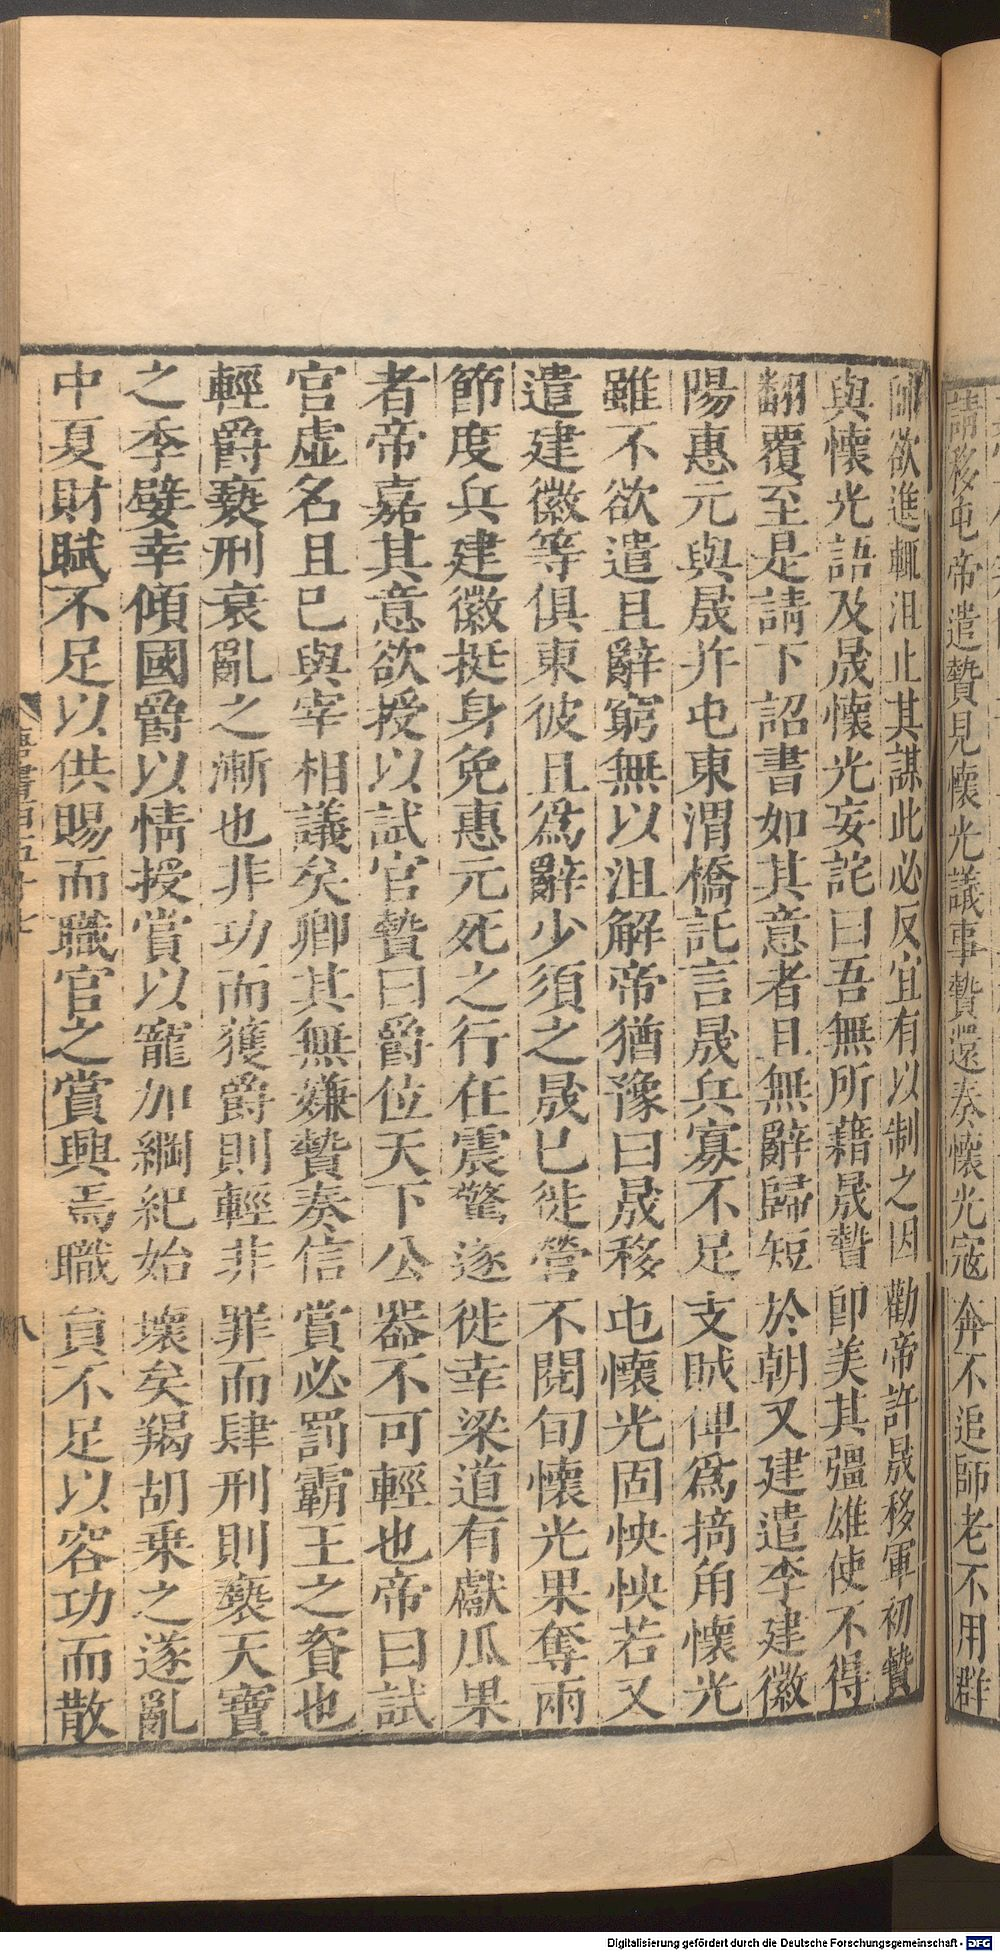 請移屯帝遣贄見懷光議事贄還奏懷光寇奔不追師老不用群
帥欲進輒沮止其謀此必反宜有以制之因勸帝許晟移軍初贄
與懷光語及晟懷光妄詫曰吾無所藉晟贄卽美其彊雄使不得
翻覆至是請下詔書如其意者且無辭歸短於朝又建遣李建徽
陽惠元與晟幷屯東渭橋託言晟兵寡不足支賊俾爲掎角懷光
雖不欲遣且辭窮無以沮解帝猶豫曰晟移屯懷光固怏怏若又
遣建徽等俱東彼且爲辭少須之晟已徙營不閱旬懷光果奪兩
節度兵建徽挺身免惠元死之行在震驚遂徙幸梁道有獻瓜果
者帝嘉其意欲授以試官贄曰爵位天下公器不可輕也帝曰試
官虛名且已與宰相議矣卿其無嫌贄奏信賞必罰霸王之資也
輕爵褻刑衰亂之漸也非功而獲爵則輕非罪而肆刑則褻天寶
之季嬖幸傾國爵以情授賞以寵加綱紀始壞矣羯胡乘之遂亂
中夏財賦不足以供賜而職官之賞興焉職員不足以容功而散
唐書百五十七
八
Digitalisierung gefördert durch die Deutsche Forschungsgemeinschaft - DFG